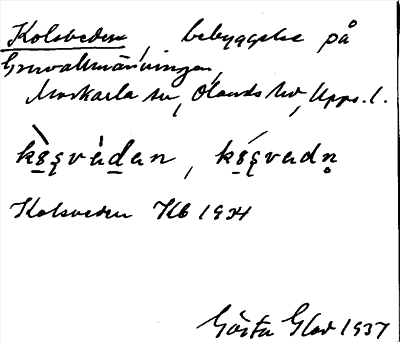 Kolsveden, bebyggelse på
Gruvallmänningen,
Morkarla sn, Olands hd, Upps. l.
ko̱s̨vàdan, kó̱s̨vadn̥
Kolsveden KB 1934
Gösta Glad 1937